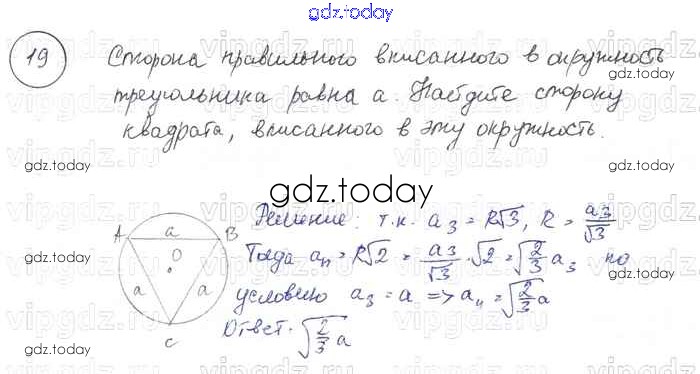 gdz.today
19
Сторона правильного вписанного в окружность
треугольника равна a. Найдите сторону
квадрата, вписанного в эту окружность.
gdz.today
gdz.today
gdz.today
gdz.today
Решение: т.к. a₃ = R√3, R = a₃/√3
A a B
O
a a
C
Тогда a₄ = R√2 = a₃/√3 · √2 = √(2/3) a₃ по
условию a₃ = a => a₄ = √(2/3) a
Ответ. √(2/3) a
gdz.today
gdz.today
gdz.today
gdz.today